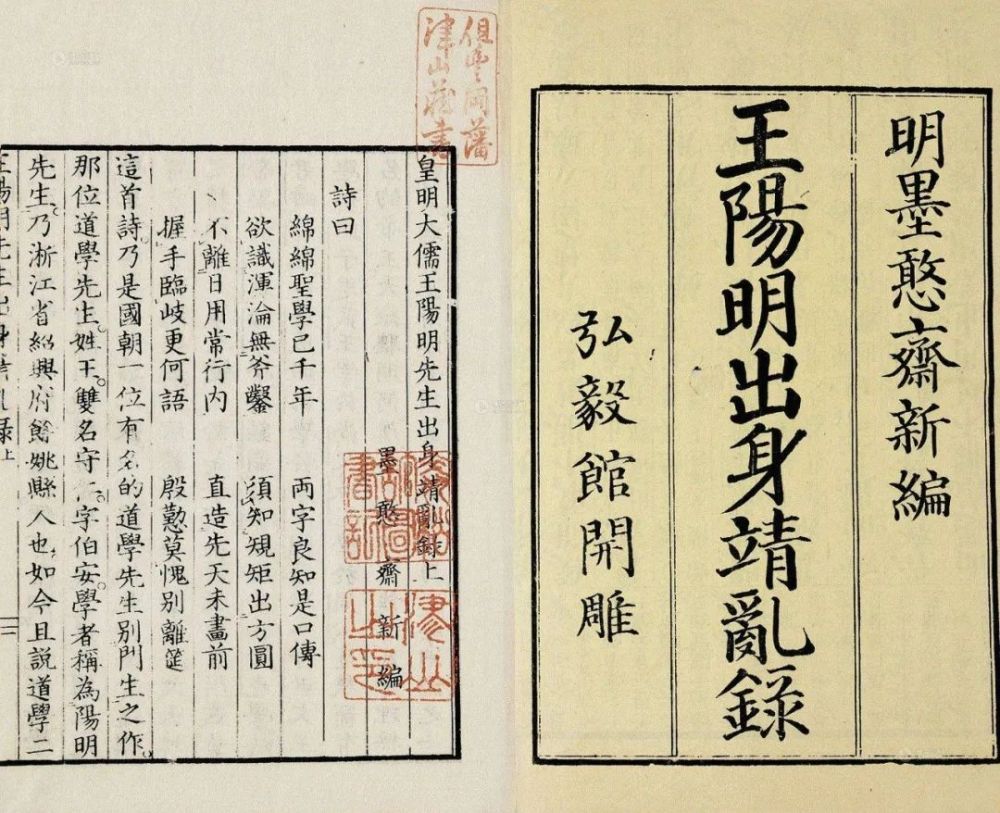 明墨憨齋新編
王陽明出身靖亂錄
弘毅館開雕
皇明大儒王陽明先生出身靖亂錄上
墨憨齋新編
詩曰
綿綿聖學已千年　兩字良知是口傳
欲識渾淪無斧鑿　須知規矩出方圓
不離日用常行內　直造先天未畫前
握手臨岐更何語　殷懃莫愧別離筵
這首詩乃是國朝一位有名的道學先生別門生之作
那位道學先生姓王雙名守仁字伯安學者稱為陽明
先生乃浙江省紹興府餘姚縣人也如今且說道學二
王陽明先生出身靖亂錄上
津山藏書